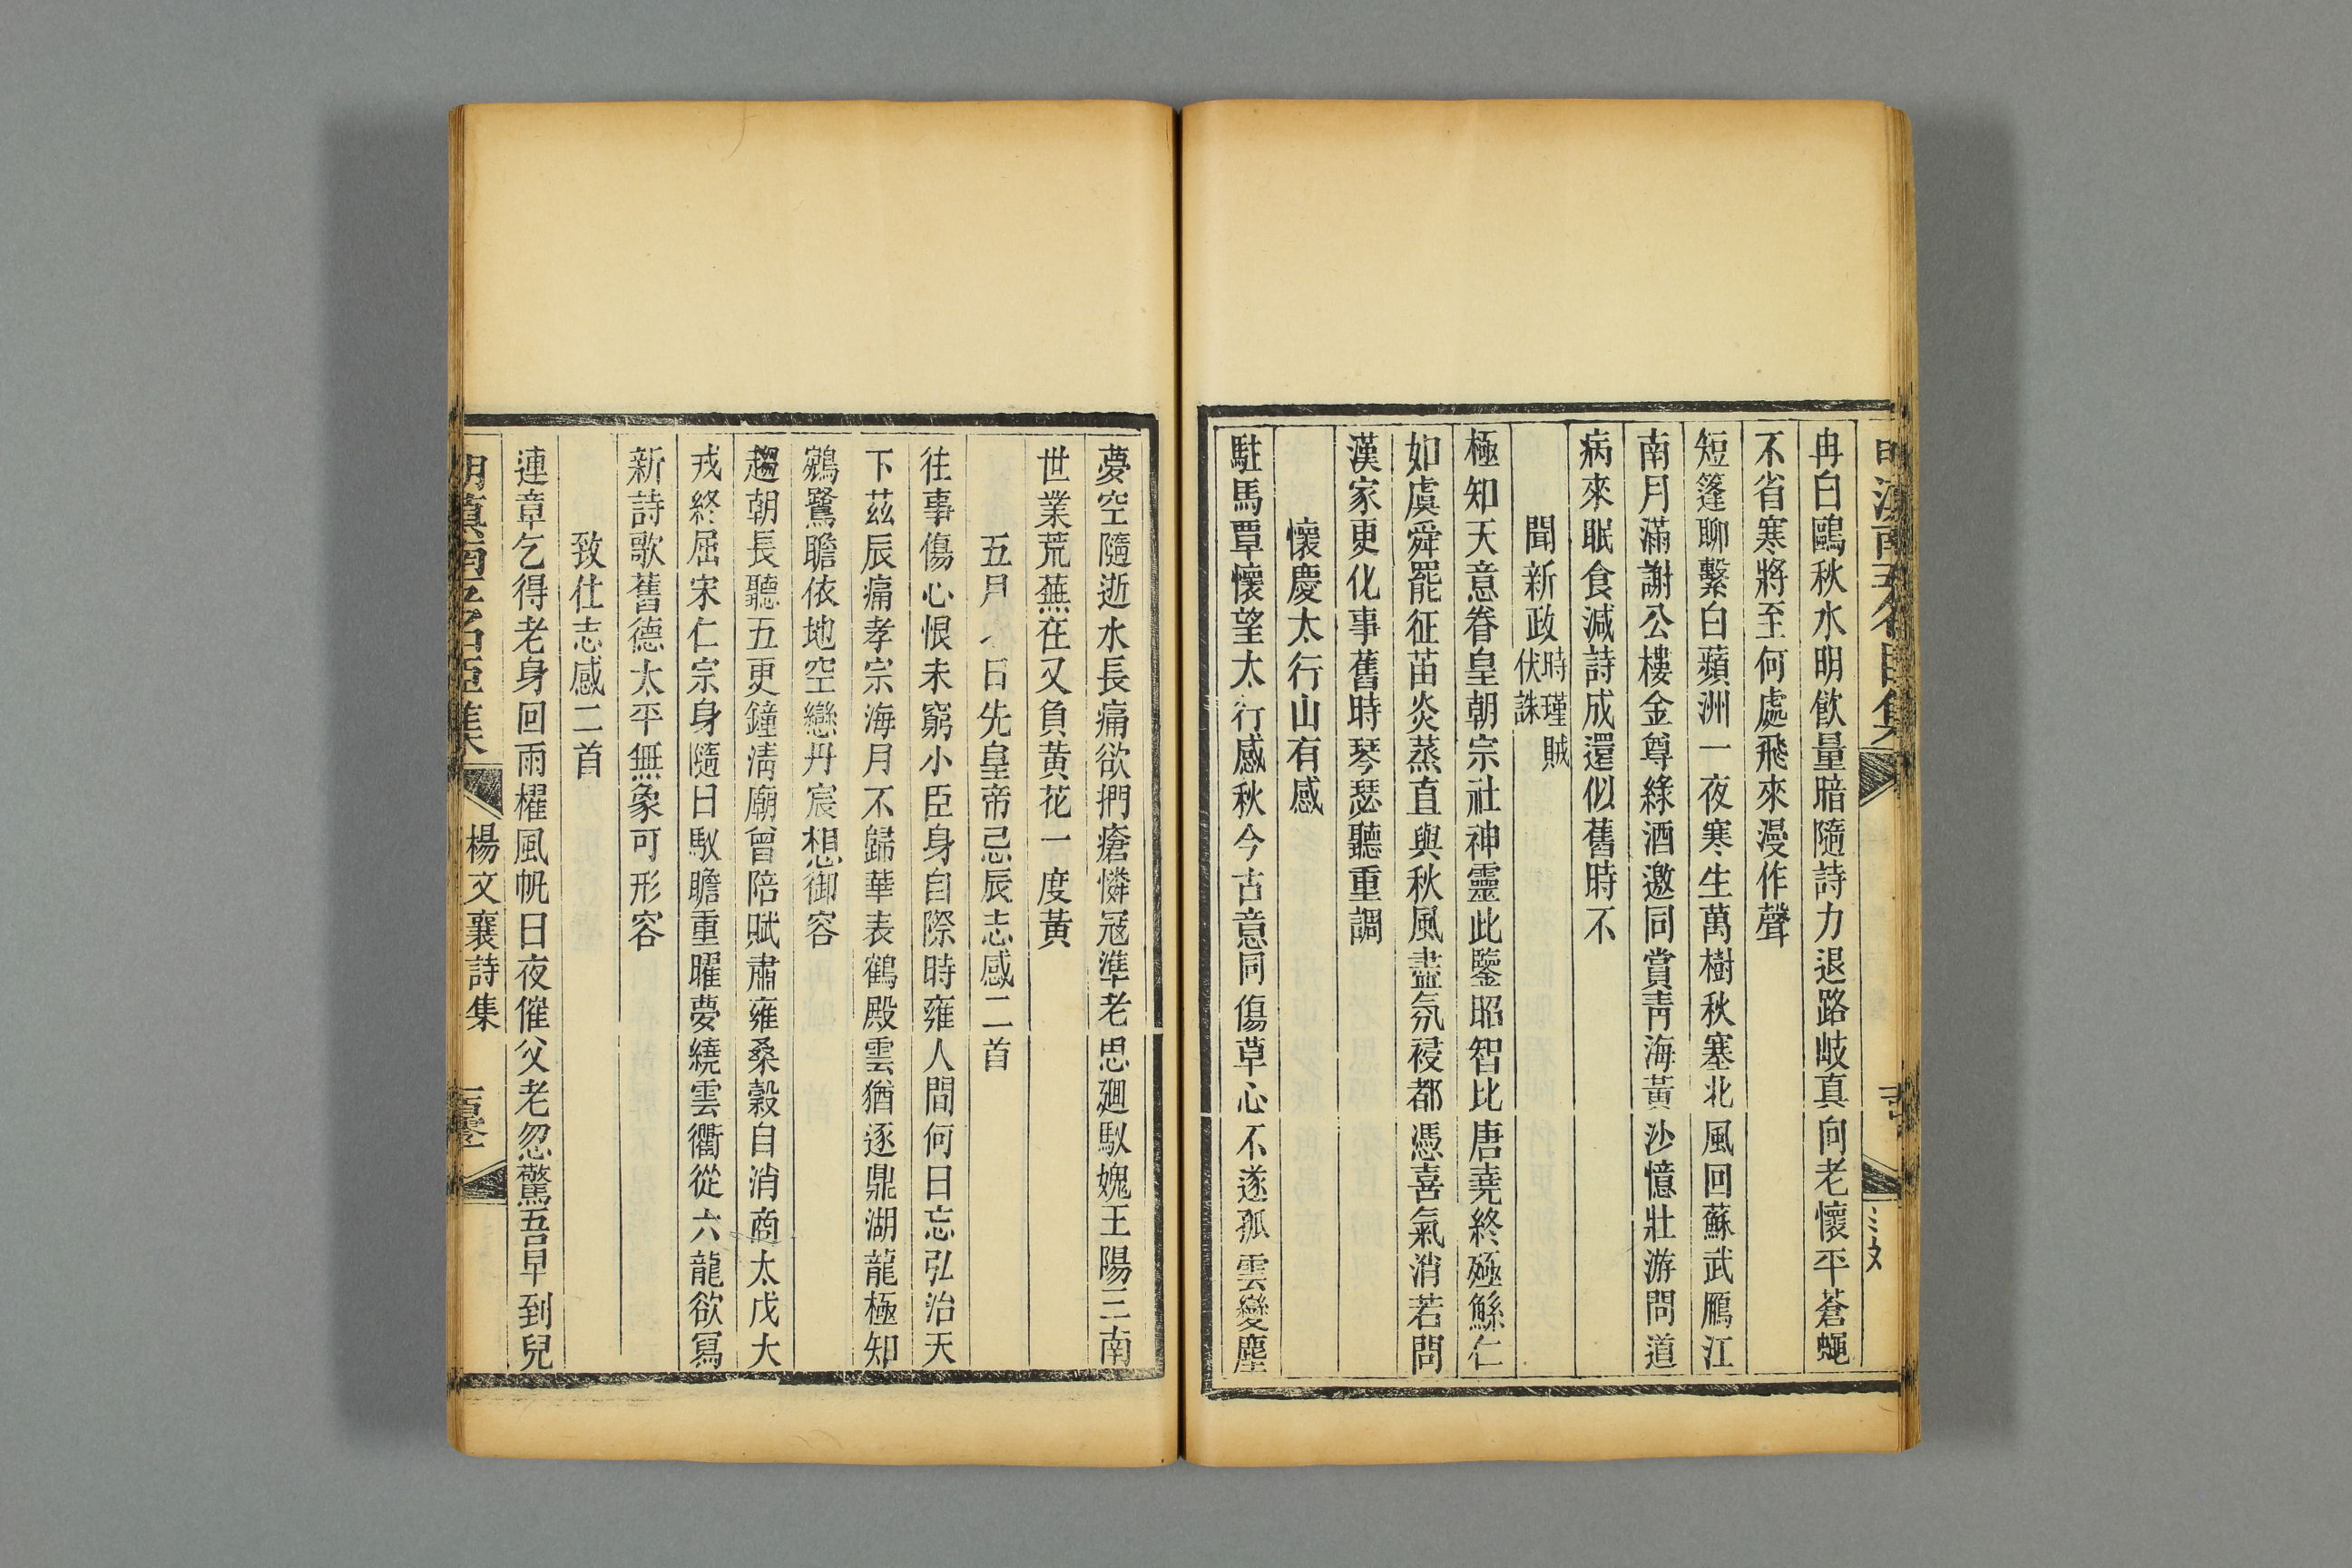 冉白鷗秋水明飲量暗隨詩力退路岐真向老懷平蒼蠅
不省寒將至何處飛來漫作聲
短篷聊繫白蘋洲一夜寒生萬樹秋塞北風回蘇武鴈江
南月滿謝公樓金尊綠酒邀同賞青海黃沙憶壯游問道
病來眠食減詩成還似舊時不
聞新政時瑾賊
伏誅
極知天意眷皇朝宗社神靈此鑒昭智比唐堯終殛鯀仁
如虞舜罷征苗炎蒸直與秋風盡氛祲都憑喜氣消若問
漢家更化事舊時琴瑟聽重調
懷慶太行山有感
駐馬覃懷望太行感秋今古意同傷草心不遂孤雲變塵
夢空隨逝水長痛欲捫瘡憐冦準老思廻馭媿王陽三南
世業荒蕪在又負黄花一度黃
五月 日先皇帝忌辰志感二首
往事傷心恨未窮小臣身自際時雍人間何日忘弘治天
下茲辰痛孝宗海月不歸華表鶴殿雲猶逐鼎湖龍極知
鵷鷺瞻依地空戀丹宸想御容
趨朝長聽五更鐘淸廟曾陪賦肅雍桑穀自消商太戊大
戎終屈宋仁宗身隨日馭瞻重曜夢繞雲衢從六龍欲冩
新詩歌舊德太平無象可形容
致仕志感二首
連章乞得老身回雨櫂風帆日夜催父老忽驚吾早到兒
明滇南五名臣集
楊文襄詩集